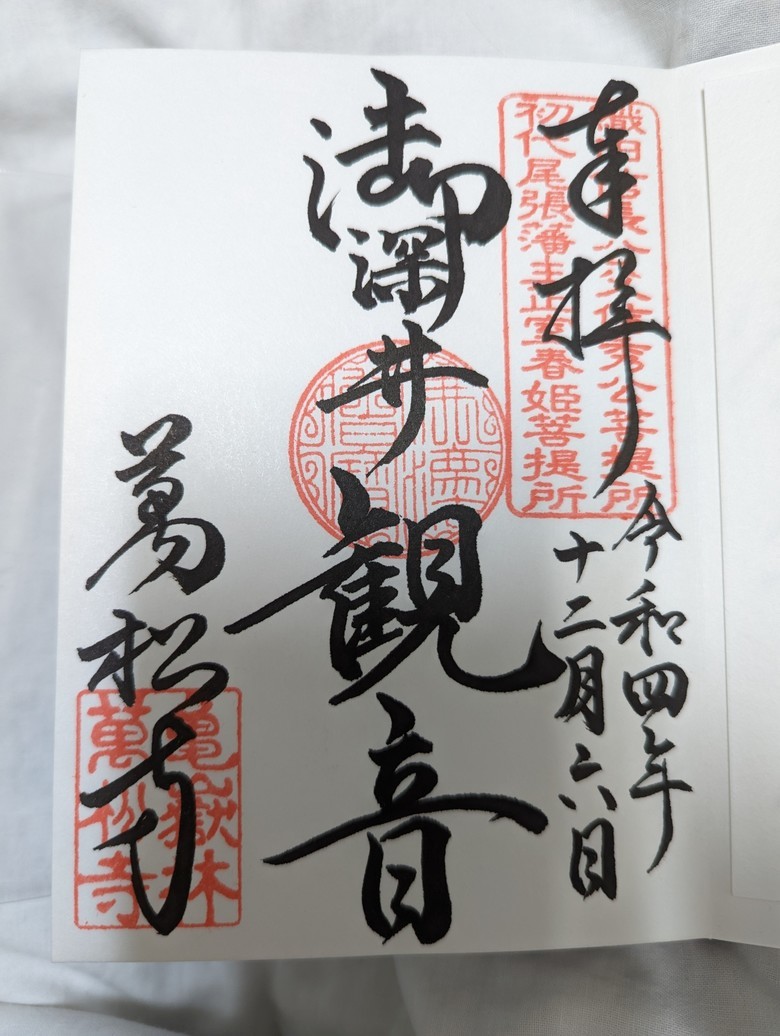 奉拝
織田信長公 父信秀公菩提所
初代尾張藩主正室春姫菩提所
令和四年
十二月六日
御深井観音
萬松寺
亀嶽林
萬松寺